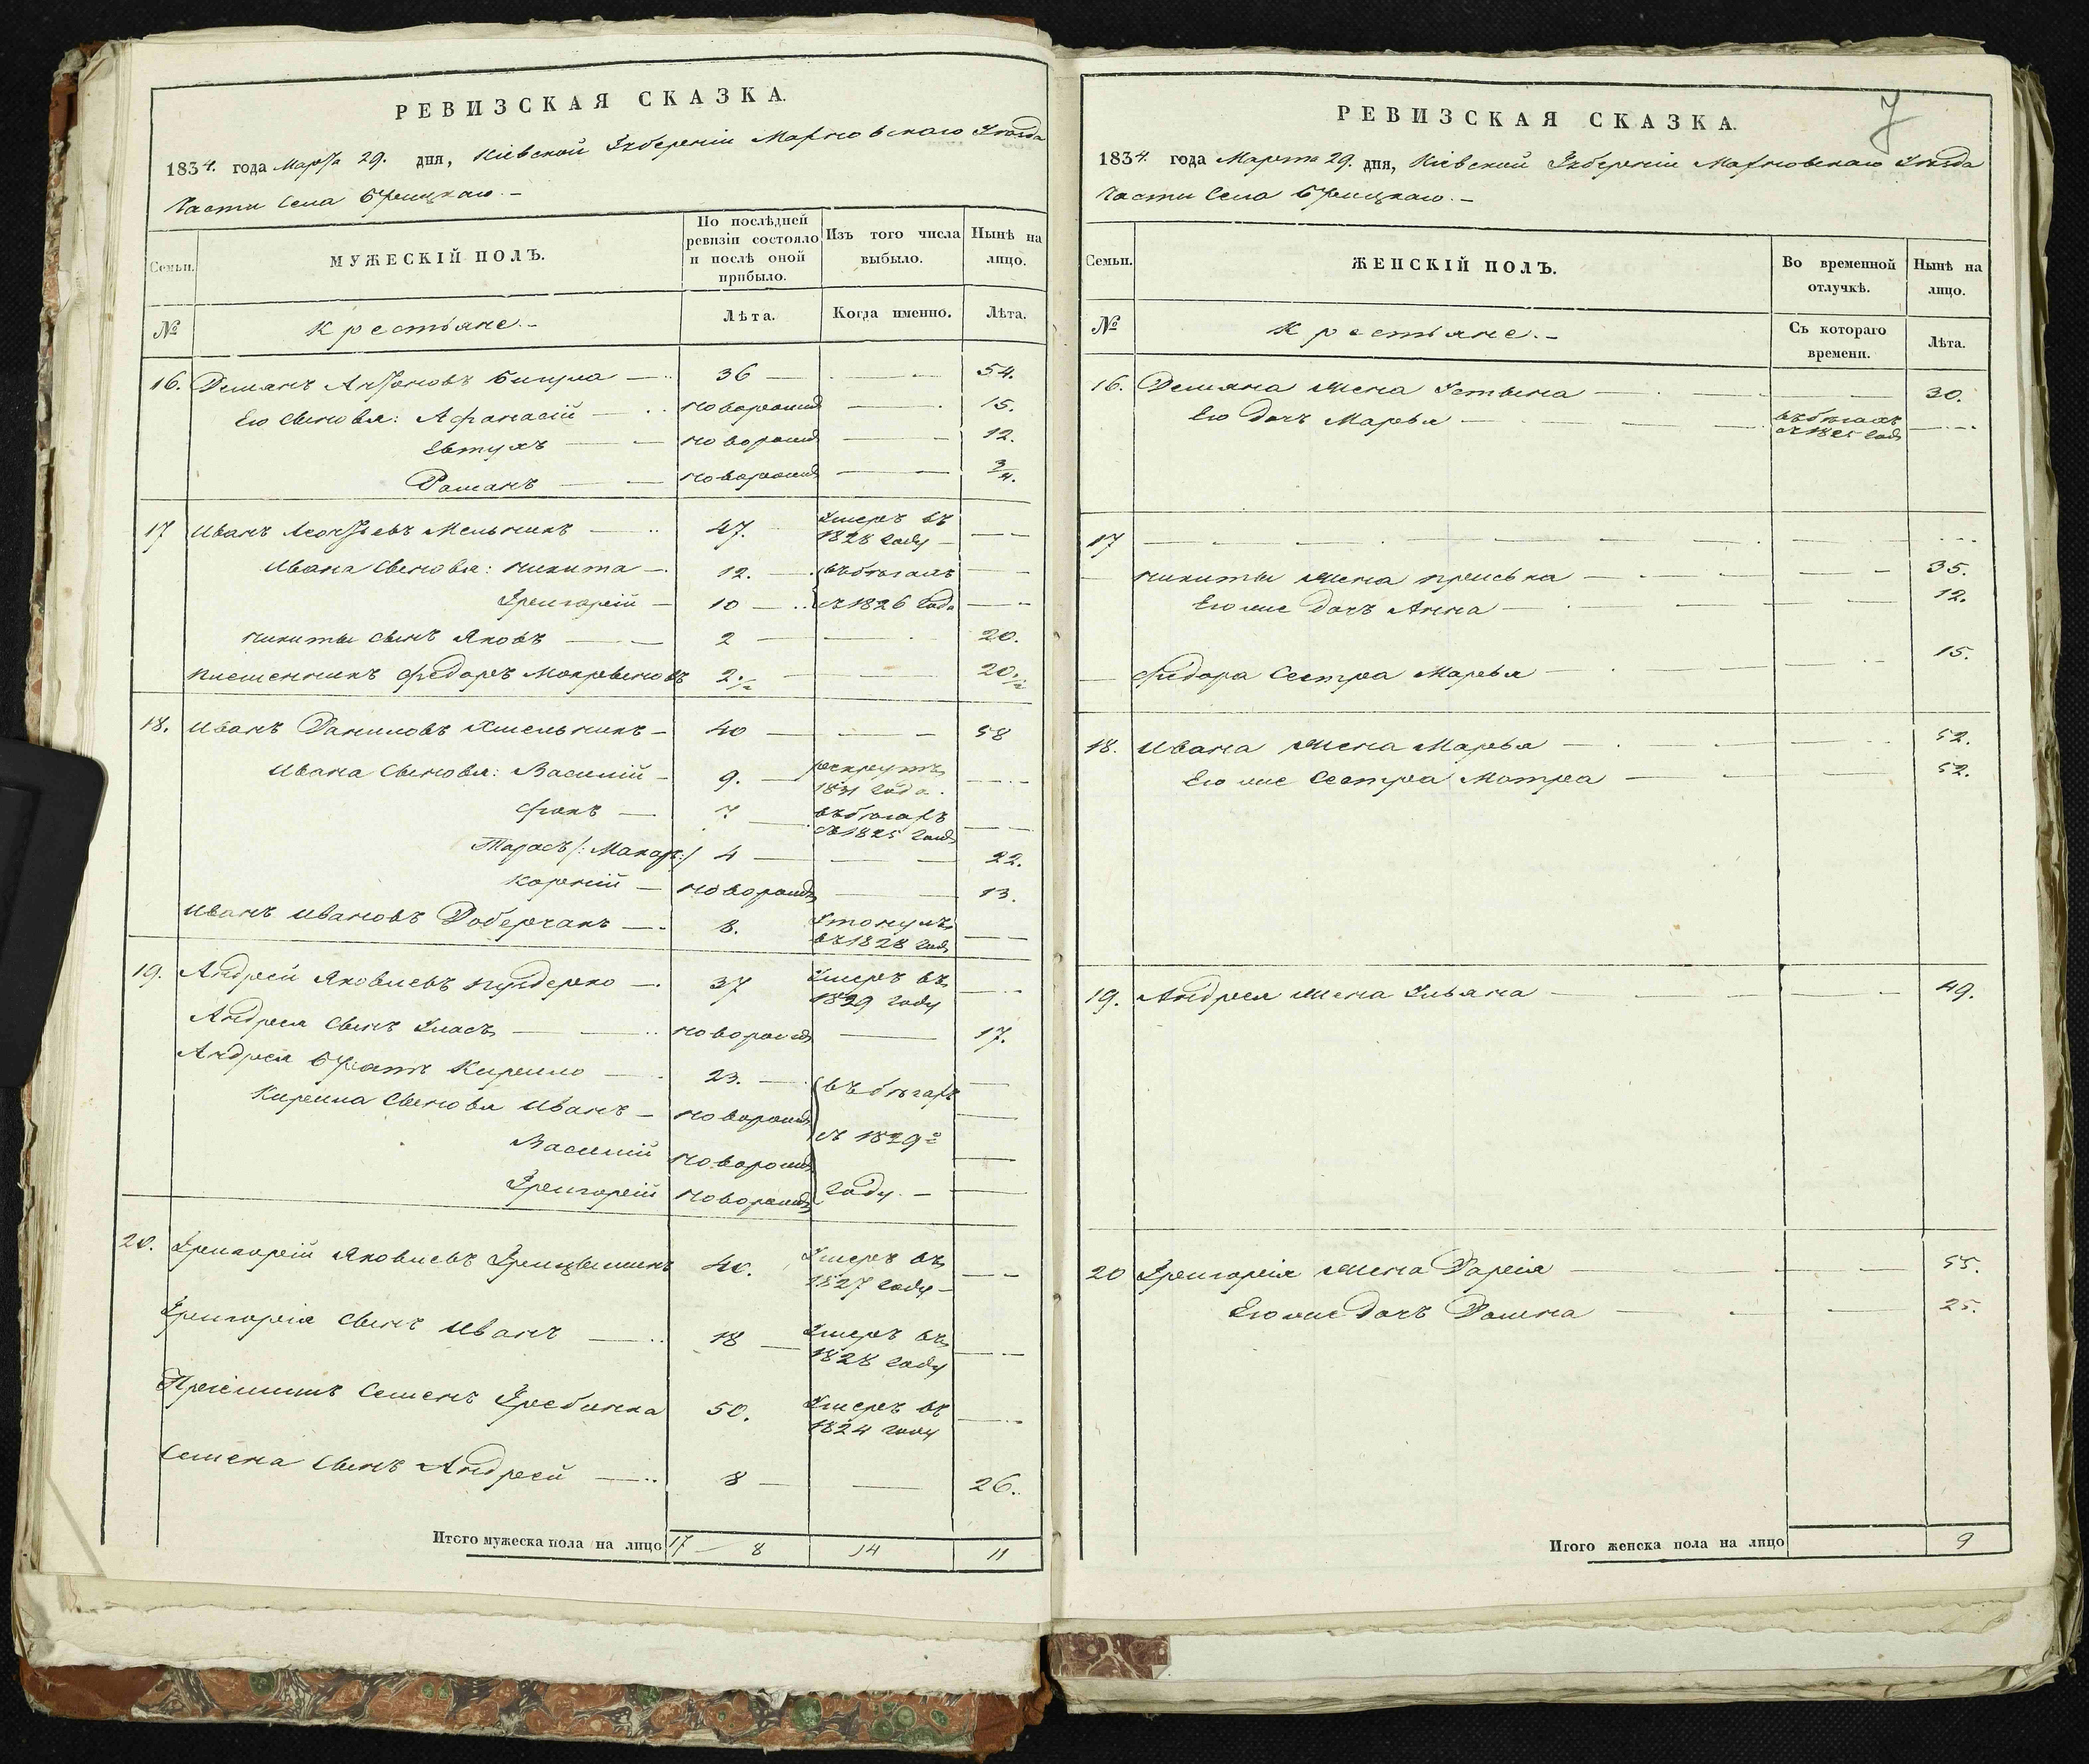 РЕВИЗСКАЯ СКАЗКА.
1834. года Марта 29. дня, Кіевской Губерніи Махновскаго Уѣзда
Части Села Брицкаго.-
Семьи.
МУЖЕСКІЙ ПОЛЪ.
По послѣдней ревизіи состояло и послѣ оной прибыло.
Изъ того числа выбыло.
Нынѣ на лицо.
№
Крестьяне.-
Лѣта.
Когда именно.
Лѣта.
16. Демянъ Антоновъ 36 54.
Его Сыновья: Афанасій новорожд 15.
Евтухъ новорожд 12.
Романъ новорожд 3/4.
17 Иванъ Леонтьевъ Мельникъ 47. Умеръ въ 1828 году
Ивана Сыновья: Никита 12. въ бѣгахъ
Григорій 10 съ 1826 года
Никиты Сынъ Яковъ 2 20.
Племенникъ Фидоръ 2.1/2 20.1/2
18. Иванъ Даниловъ Хмельникъ 40 58
Ивана Сыновья: Василій 9. рекрутъ 1831 года.
Фокъ 7 въ бѣгахъ съ 1825 года
Тарасъ /:Макаръ:/ 4 22.
Корній новорожд 13.
Иванъ Ивановъ 8. Утонулъ въ 1828 год
19. Андрей Яковлевъ 37 Умеръ въ 1829 году
Андрея Сынъ Власъ новорожд 17.
Андрея Братъ Кирило 23. въ бѣгахъ
Кирила Сыновья Иванъ новорожд съ 1829го
Василій новорожд
Григорій новорожд году.
20. Григорій Яковлевъ Грицышинъ 40. Умеръ въ 1827 году
Григорія Сынъ Иванъ 18 Умеръ въ 1828 году
Семенъ Гребинка 50. Умеръ въ 1824 году
Семена Сынъ Андрей 8 26.
Итого мужеска пола на лицо 17 8 14 11
7
РЕВИЗСКАЯ СКАЗКА.
1834. года Марта 29. дня, Кіевской Губерніи Махновскаго Уѣзда
Части Села Брицкаго.-
Семьи.
ЖЕНСКІЙ ПОЛЪ.
Во временной отлучкѣ.
Нынѣ на лицо.
№
Крестьяне.-
Съ котораго времени.
Лѣта.
16. Демяна Жена Устына 30.
Его Дочь Марья въ бѣгахъ съ 1825 года
17
Никиты Жена Приська 35.
Его же Дочь Анна 12.
Фидора Сестра Марья 15.
18. Ивана Жена Марья 52.
Его же Сестра Мотра 52.
19. Андрея Жена Ульяна 49.
20 Григорія Жена Дарія 55.
Его же Дочь Домна 25.
Итого женска пола на лицо 9